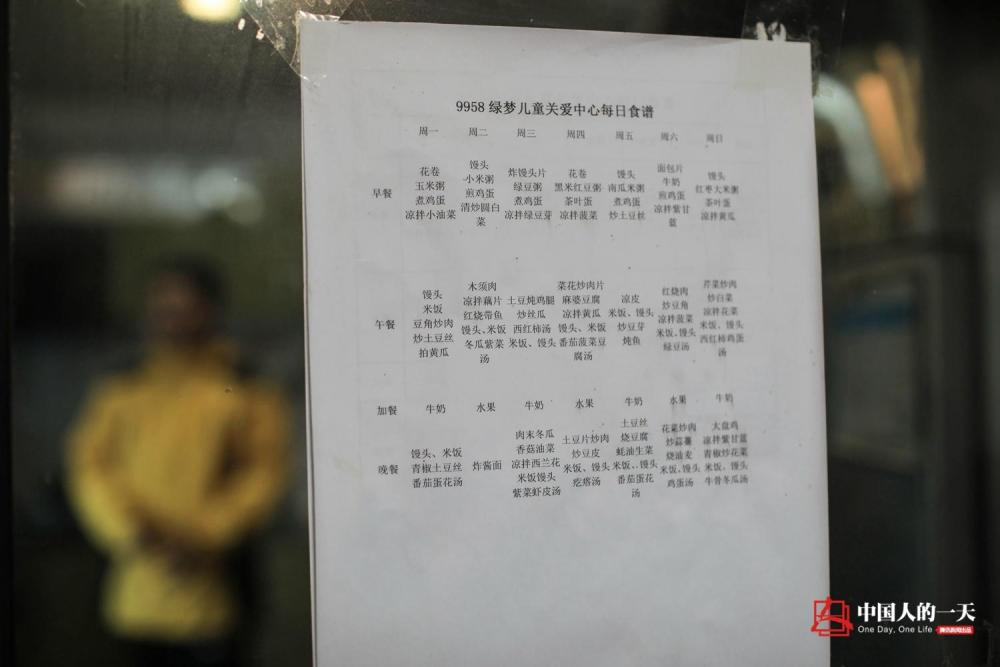 9958 绿梦儿童关爱中心每日食谱
周一 周二 周三 周四 周五 周六 周日
早餐
花卷
玉米粥
煮鸡蛋
凉拌小油菜
馒头
小米粥
煎鸡蛋
清炒圆白
菜
炸馒头片
绿豆粥
煮鸡蛋
凉拌绿豆芽
花卷
黑米红豆粥
茶叶蛋
凉拌菠菜
馒头
南瓜米粥
煮鸡蛋
炒土豆丝
面包片
牛奶
煎鸡蛋
凉拌紫甘
蓝
馒头
红枣大米粥
茶叶蛋
凉拌黄瓜
午餐
馒头
米饭
豆角炒肉
炒土豆丝
拍黄瓜
木须肉
凉拌藕片
红烧带鱼
馒头、米饭
冬瓜紫菜
汤
土豆炖鸡腿
炒丝瓜
西红柿汤
米饭、馒头
菜花炒肉片
麻婆豆腐
凉拌黄瓜
馒头、米饭
番茄菠菜豆
腐汤
凉皮
米饭、馒头
炒豆芽
炖鱼
红烧肉
炒豆角
凉拌菠菜
米饭、馒头
绿豆汤
芹菜炒肉
炒白菜
凉拌花菜
米饭、馒头
西红柿鸡蛋
汤
加餐 牛奶 水果 牛奶 水果 牛奶 水果 牛奶
晚餐
馒头、米饭
青椒土豆丝
番茄蛋花汤
炸酱面
肉末冬瓜
香菇油菜
凉拌西兰花
米饭馒头
紫菜虾皮汤
土豆片炒肉
炒豆皮
米饭、馒头
疙瘩汤
土豆丝
烧豆腐
蚝油生菜
米饭、馒头
番茄蛋花
汤
花菜炒肉
炒蒜薹
烧油麦
米饭、馒头
鸡蛋汤
大盘鸡
凉拌紫甘蓝
青椒炒花菜
米饭、馒头
牛骨冬瓜汤
中国人的一天
One Day, One Life 腾讯新闻出品